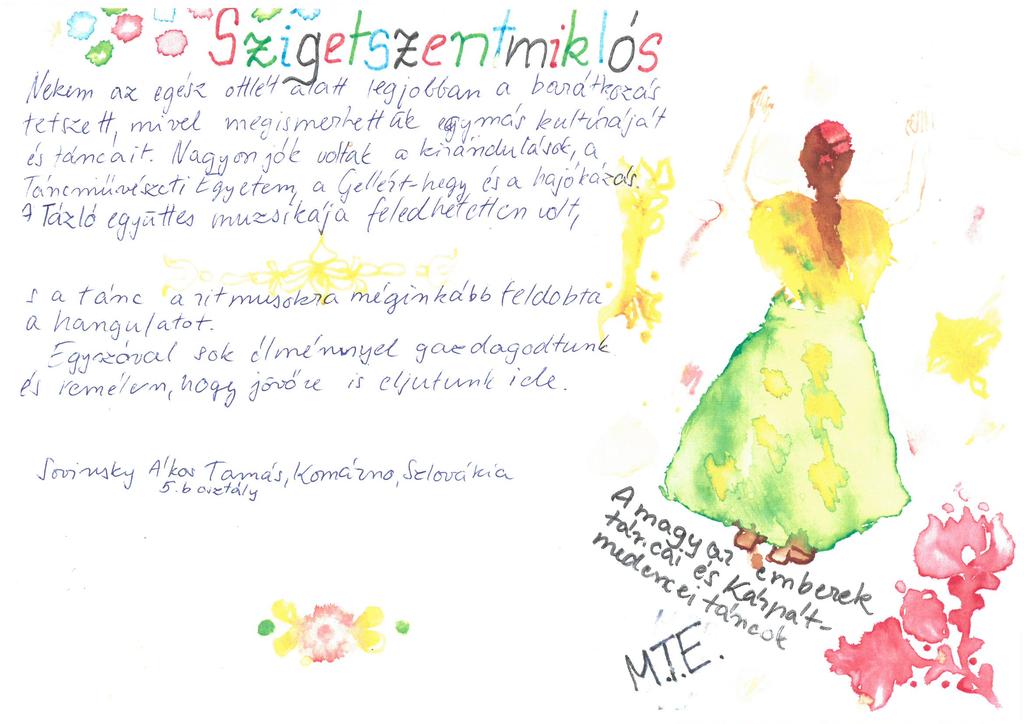 Szigetszentmiklós
Nekem az egész ottlét alatt legjobban a barátkozás
tetszett, mivel megismerhettük egymás kultúráját
és táncait. Nagyon jók voltak a kirándulások, a
Táncművészeti Egyetem, a Gellért-hegy és a hajókázás.
A Tázló együttes muzsikája feledhetetlen volt,
s a tánc a ritmusokra méginkább feldobta
a hangulatot.
Egyszóval sok élménnyel gazdagodtunk
és remélem, hogy jövőre is eljutunk ide.
Sovinsky Ákos Tamás, Komárno, Szlovákia
5.b osztály
A magyar emberek
táncai és Kárpát-
medencei táncok
M.T.E.